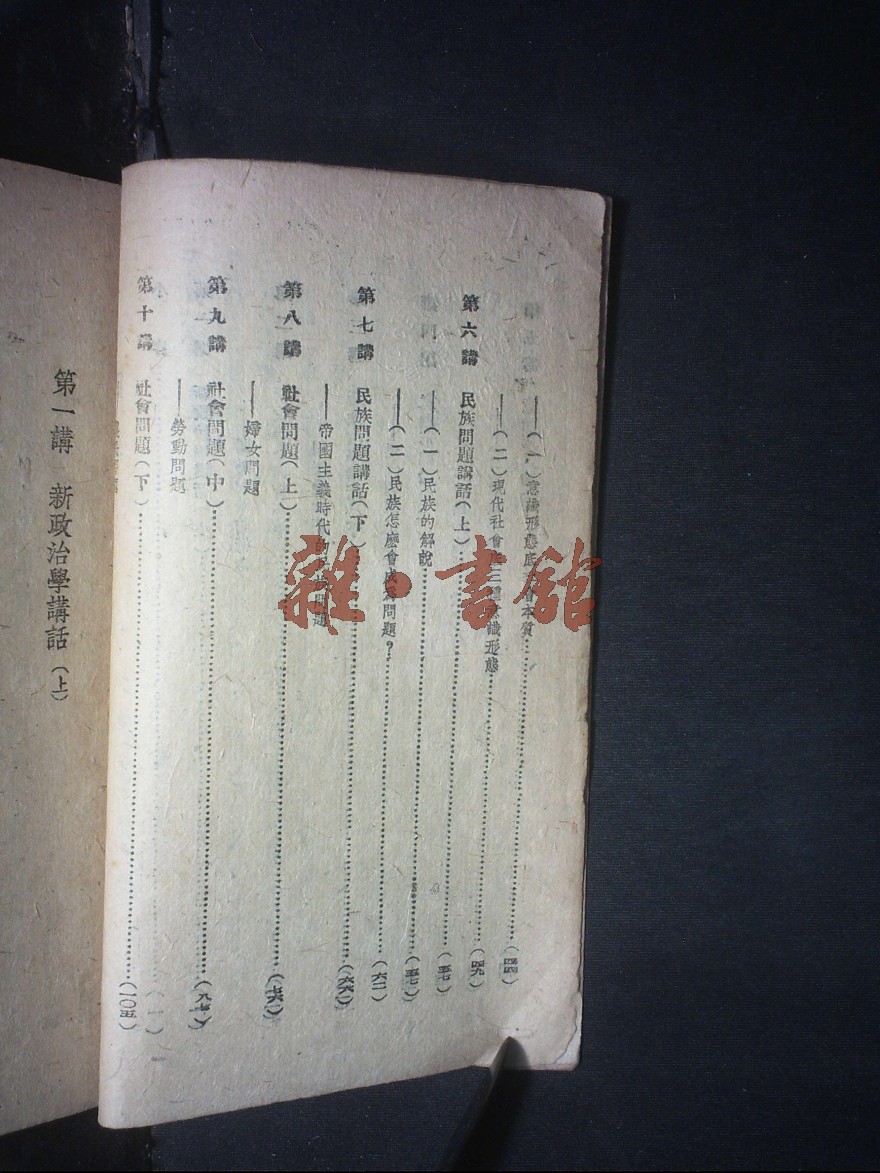 ——(一)意識形態底會本質……(四四)
——(二)現代社會三種意識形態……(四九)
第六講 民族問題講話(上)……(五七)
——(一)民族的解說……(五七)
——(二)民族怎麼會成爲問題?……(六二)
第七講 民族問題講話(下)……(六六)
——帝國主義時代的問題
第八講 社會問題(上)……(七六)
——婦女問題
第九講 社會問題(中)……(八七)
——勞動問題
第十講 社會問題(下)……(一〇五)
第一講 新政治學講話(上)
雜·書館